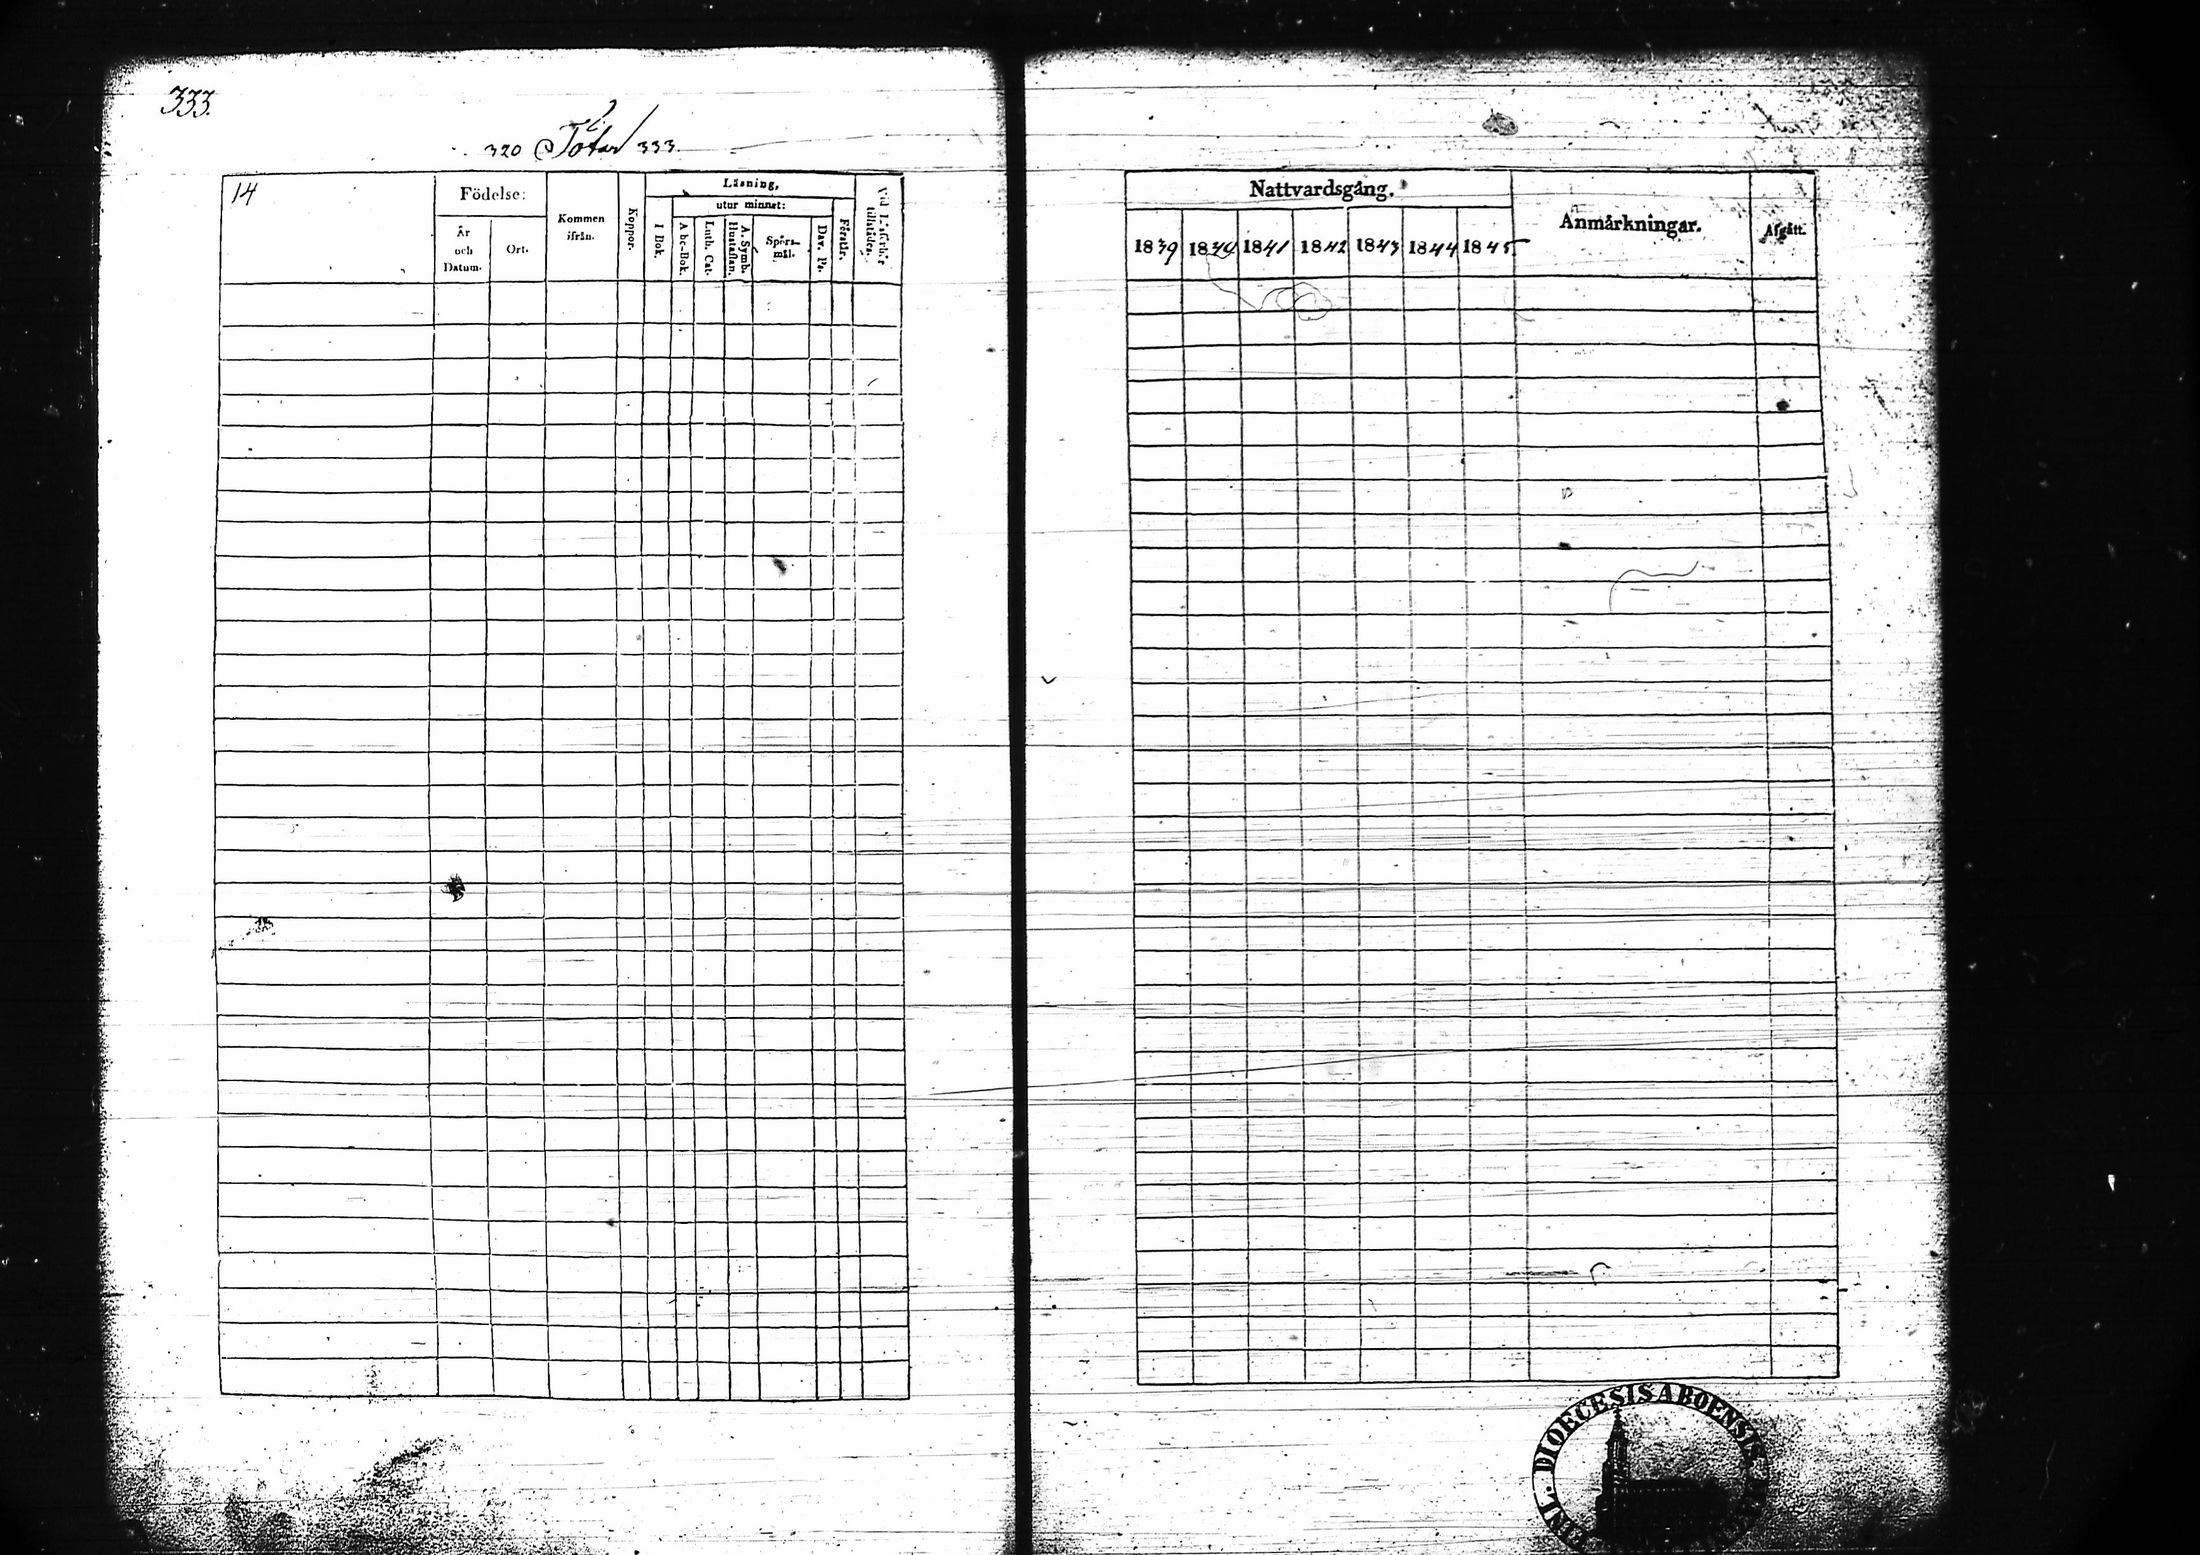 333.
320 333.
14
Födelse:
År
och
Datum.
Ort.
Kommen
ifrån.
Koppor.
Läsning,
utur minnet:
I Bok.
Abc-Bok.
Luth. Cat.
A. Symb.
Hustaflan.
Spörs-
mål.
Dav. Ps.
Förstår.
Vid Läseförhör
tillstädes.
Nattvardsgång.
1839 1840 1841 1842 1843 1844 1845
Anmärkningar.
Afgått.
DIOECESIS ABOENSIS